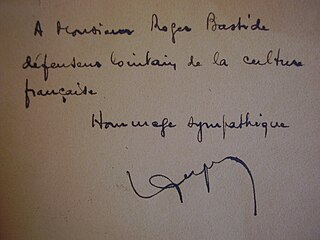 A Monsieur Roger Bastide
défenseur lointain de la culture
française
Hommage sympathique